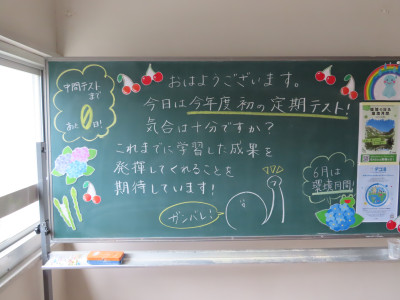 中間テスト
まで
あと0日!
おはようございます。
今日は今年度初の定期テスト!
気合は十分ですか?
これまでに学習した成果を
発揮してくれることを
期待しています!
ガンバレ!
6月は
環境月間